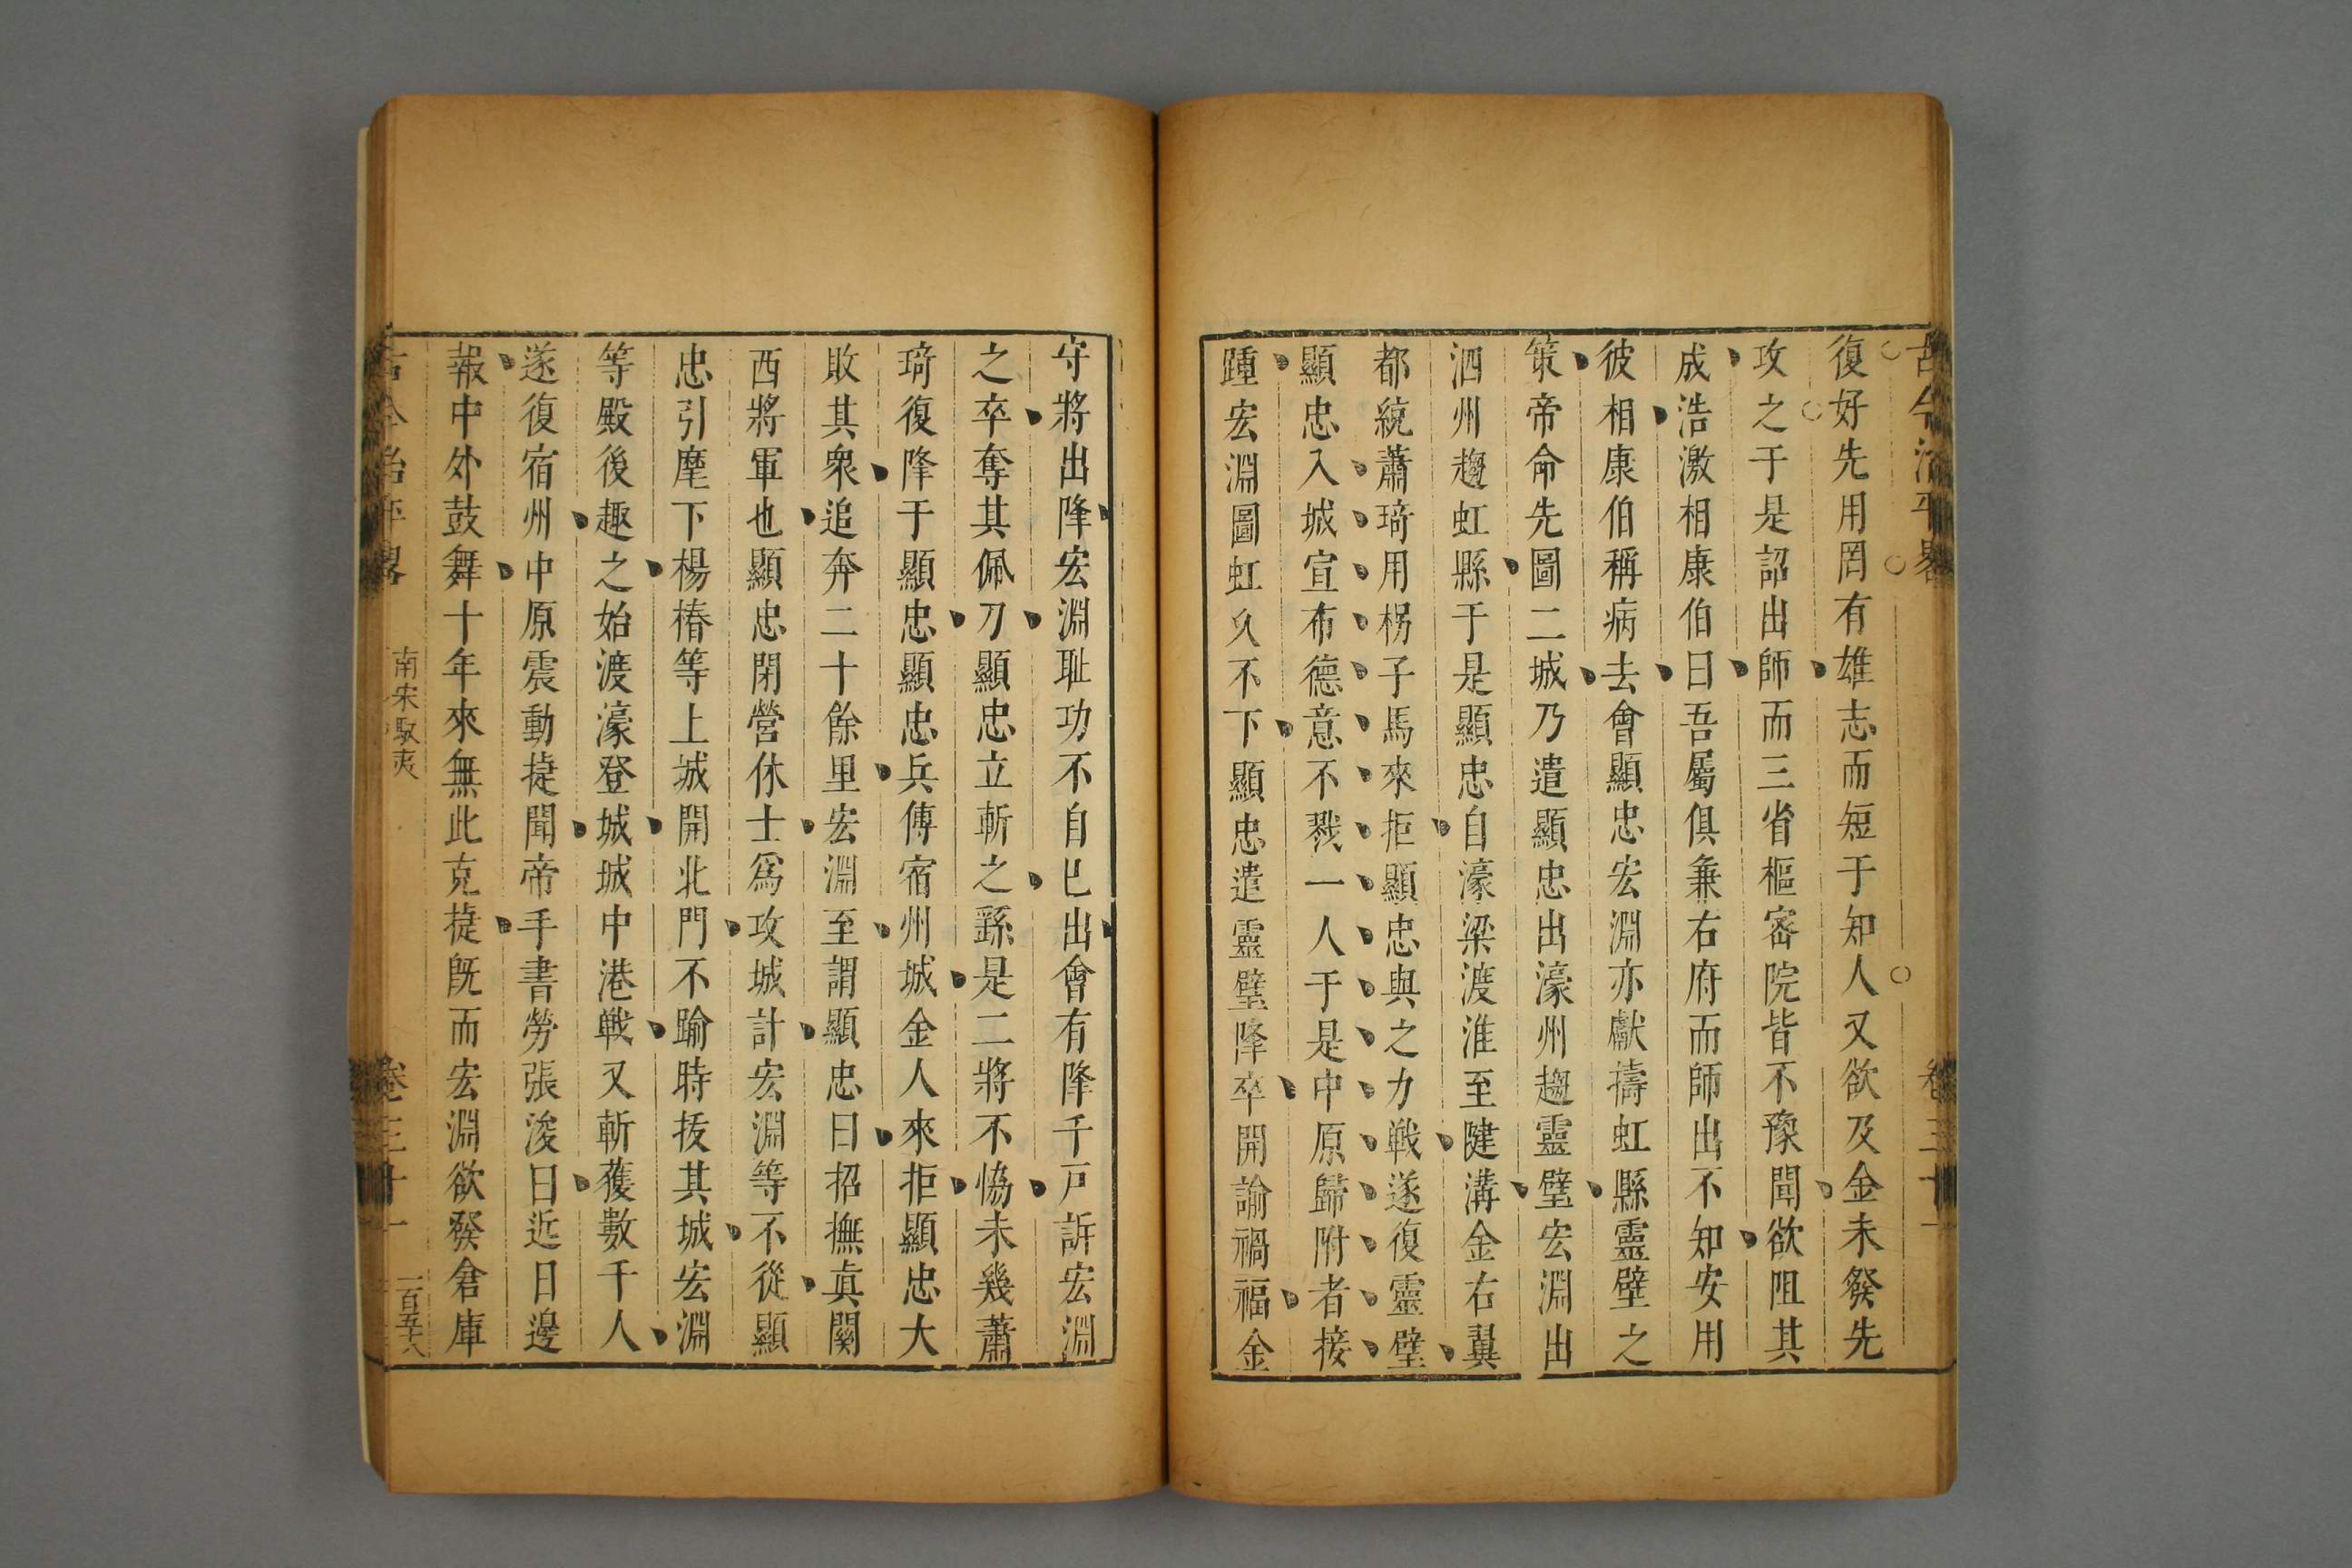 古今治平畧
卷三十一
復好先用罔有雄志而短于知人又欲及金未發先
攻之于是詔出師而三省樞密院皆不豫聞欲阻其
成浩激相康伯曰吾屬俱兼右府而師出不知安用
彼相康伯稱病去會顯忠宏淵亦獻擣虹縣靈壁之
策帝命先圖二城乃遣顯忠出濠州趨靈壁宏淵出
泗州趨虹縣于是顯忠自濠梁渡淮至陡溝金右翼
都統蕭琦用柺子馬來拒顯忠與之力戰遂復靈壁
顯忠入城宣布德意不戮一人于是中原歸附者接
踵宏淵圖虹久不下顯忠遣靈璧降卒開諭禍福金
守將出降宏淵耻功不自已出會有降千戸訴宏淵
之卒奪其佩刀顯忠立斬之繇是二將不恊未幾蕭
琦復降于顯忠顯忠兵傅宿州城金人來拒顯忠大
敗其衆追奔二十餘里宏淵至謂顯忠曰招撫真關
西將軍也顯忠閉營休士爲攻城計宏淵等不從顯
忠引麾下楊椿等上城開北門不踰時拔其城宏淵
等殿後趣之始渡濠登城城中巷戰又斬獲數千人
遂復宿州中原震動捷聞帝手書勞張浚曰近日邊
報中外鼓舞十年來無此克捷旣而宏淵欲發倉庫
古今治平畧
南宋馭夷
卷三十一
一百五六